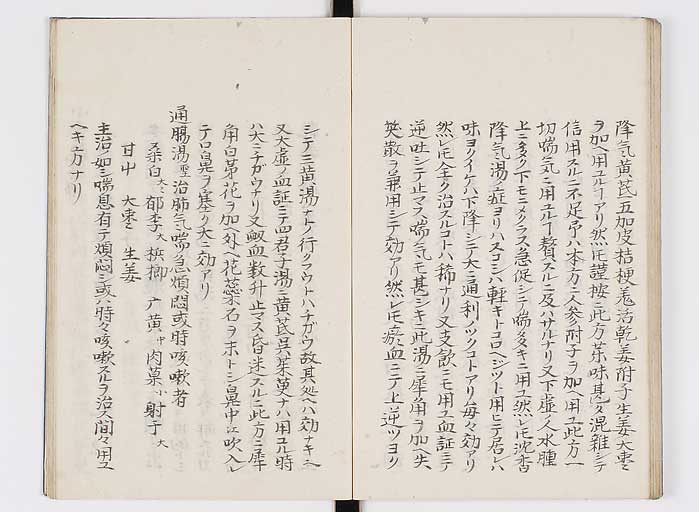 降気黄芪五加皮桔梗羗活乾姜附子生姜大棗ヲ
ヲ加ヘ用ユルヿアリ然𪜈謹按ニ此方茱味甚タ混雜シテ
信用スルニ不足吊ハ本方ニ人参附子ヲ加ヘ用ユ此方一
切喘気ニ用ユルヿ贅スルニ及ハサルナリ又下虚ノ人水腫
上ニ多ク下モニスクラス急促シテ喘多キニ用ユ然𪜈沈香
降気湯ノ症ヨリハスコシハ軽キトコロヘジツト用ヒテ居レハ
味ヨクイケハ下降シテ大ニ通利ノツクコトアリ毎々効アリ
然𪜈全ク治スルコトハ稀ナリ又支飲ニモ用ユ血証ニテ
逆吐シテ止マス喘気モ甚シキニ此湯ニ犀角ヲ加ヘ失
英散ヲ兼用シテ効アリ然𪜈瘀血ニテ上逆ツヨク
シテ三黄湯ナトノ行クアウトハチガウ故其処ヘハ効ナキ
又大虚ノ血証ニテ四君子湯ニ黄芪呉茱萸ナト用ユル時
ハ大ニチガウナリ又衂血数升止マス昏迷スルニ此方ニ犀
角白茅花ヲ加ヘ外ヘ花蘂石ヲ末トシ鼻中ニ吹入レ
テ口鼻ヲ塞ク大ニ効アリ
通腸湯 治肺気喘急煩悶或時咳嗽者
桑白大 郁李大 檳榔 广黄中 肉菓小 射干大
甘中 大棗 生姜
主治ノ如シ喘息有テ煩悶シ或ハ時々咳嗽スルヲ治ス間々用ユ
ヘキ方ナリ